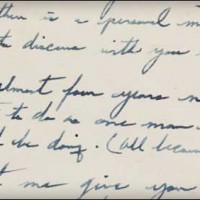 is a personal m
to discuss with you
almost four years n
to do as one man
be doing. (All becau
me give you